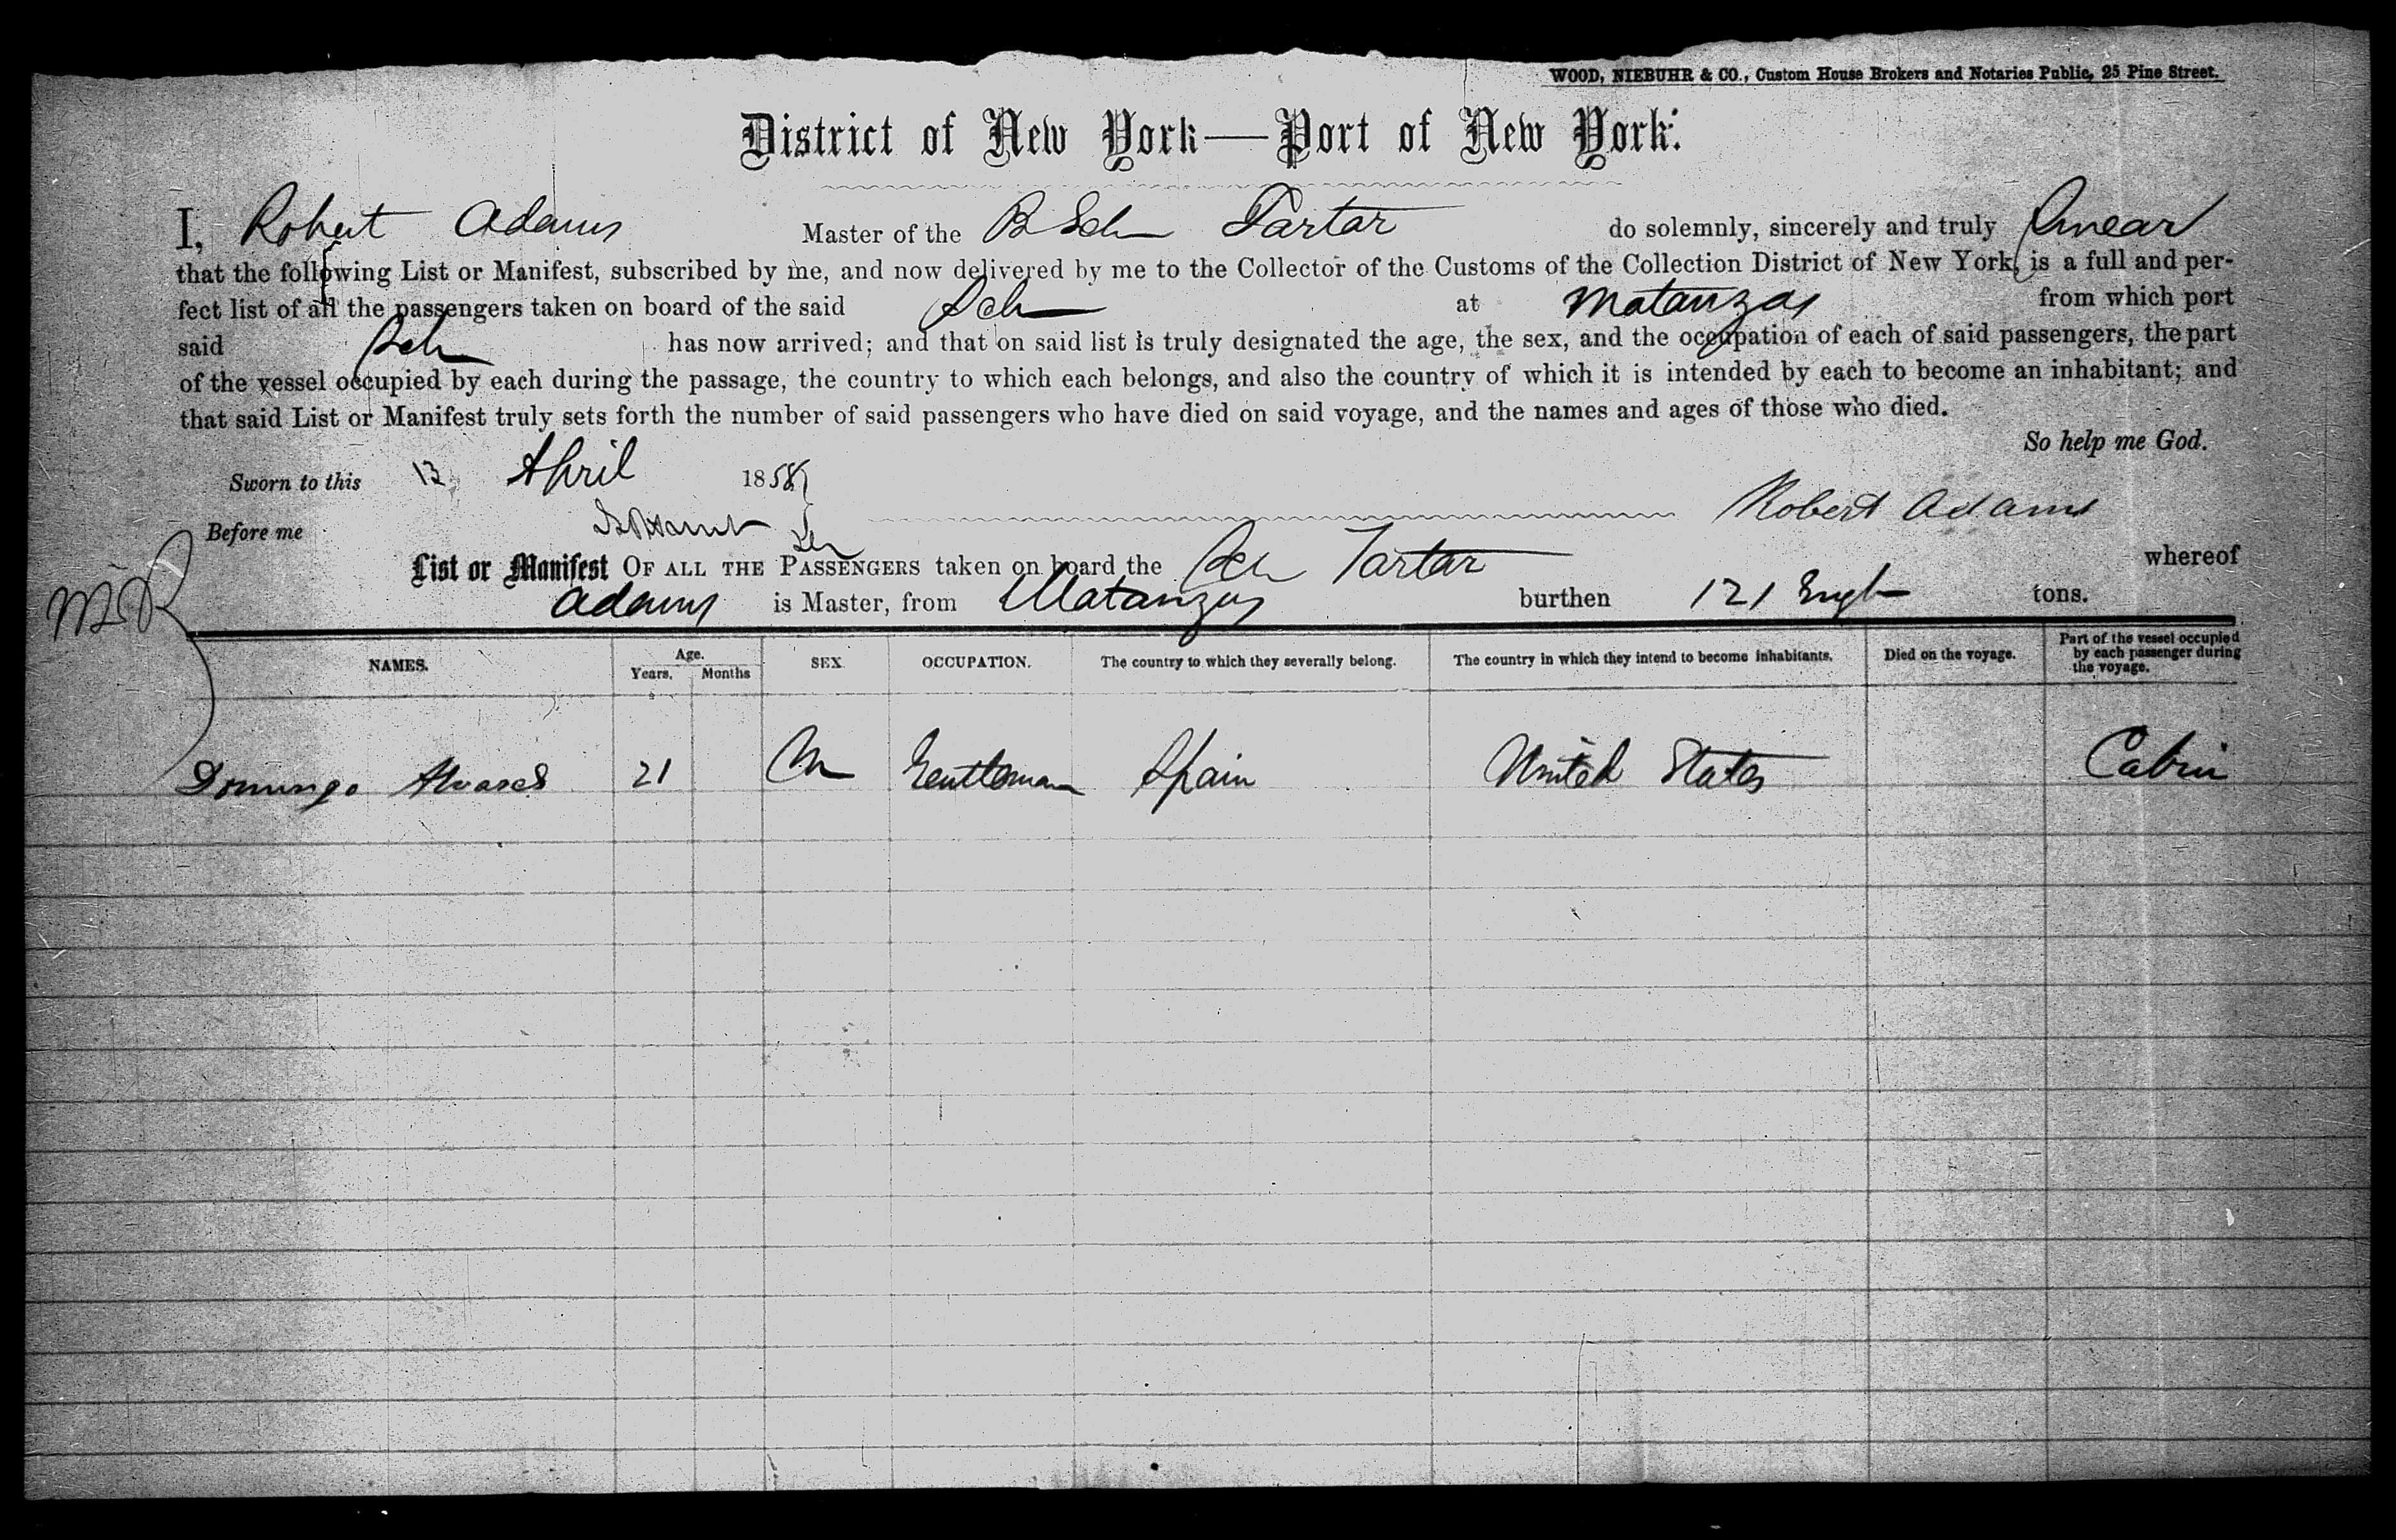 WOOD, NIEBUHR & CO., Custom House Brokers and Notaries Public, 25 Pine Street.
District of New York—Port of New York:
I, Robert Adams Master of the B Sch Tartar do solemnly, sincerely and truly Swear
that the following List or Manifest, subscribed by me, and now delivered by me to the Collector of the Customs of the Collection District of New York, is a full and per-
fect list of all the passengers taken on board of the said Sch at Matanzas from which port
said Sch has now arrived; and that on said list is truly designated the age, the sex, and the occupation of each of said passengers, the part
of the vessel occupied by each during the passage, the country to which each belongs, and also the country of which it is intended by each to become an inhabitant; and
that said List or Manifest truly sets forth the number of said passengers who have died on said voyage, and the names and ages of those who died.
So help me God.
Sworn to this 13 April 1858
Robert Adams
Before me
List or Manifest OF ALL THE PASSENGERS taken on board the Sch Tartar whereof
Adams is Master, from Matanzas burthen 121 Engh tons.
NAMES. Age. Years. Months SEX. OCCUPATION. The country to which they severally belong. The country in which they intend to become inhabitants. Died on the voyage. Part of the vessel occupied by each passenger during the voyage.
Domingo Alvares 21 M Gentleman Spain United States Cabin